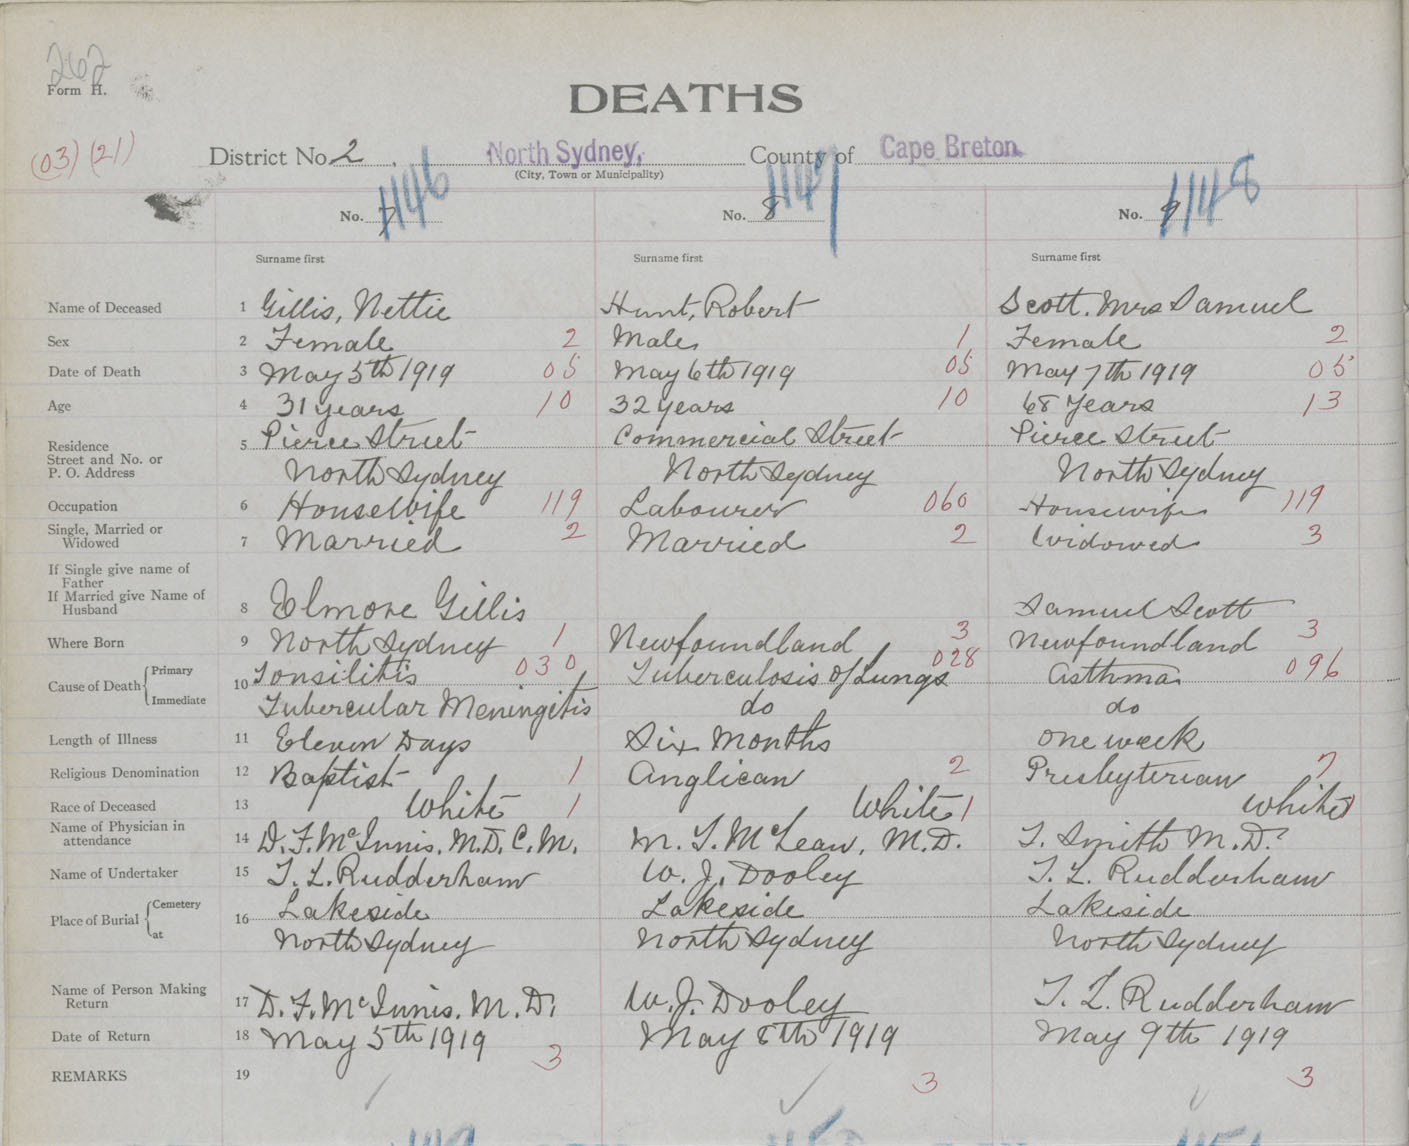 262
Form H.
DEATHS
(03) (21)
District No. 2 North Sydney, County of Cape Breton
(City, Town or Municipality)
No. 7 1146 No. 8 1147 No. 9 1148
Surname first Surname first Surname first
Name of Deceased 1 Gillis, Nettie Hunt, Robert Scott, Mrs Samuel
Sex 2 Female 2 Male 1 Female 2
Date of Death 3 May 5th 1919 05 May 6th 1919 05 May 7th 1919 05
Age 4 31 years 10 32 years 10 68 Years 13
Residence 5 Pierce Street Commercial Street Pierce Street
Street and No. or
P. O. Address North Sydney North Sydney North Sydney
Occupation 6 Housewife 119 Labourer 060 Housewife 119
Single, Married or
Widowed 7 Married 2 Married 2 Widowed 3
If Single give name of
Father
If Married give Name of
Husband 8 Elmore Gillis Samuel Scott
Where Born 9 North Sydney 1 Newfoundland 3 Newfoundland 3
Cause of Death Primary 10 Tonsilitis 030 Tuberculosis of Lungs 028 Asthma 096
Immediate Tubercular Meningitis do do
Length of Illness 11 Eleven Days Six Months One week
Religious Denomination 12 Baptist 1 Anglican 2 Presbyterian 7
Race of Deceased 13 White 1 White 1 White 1
Name of Physician in
attendance 14 D. F. McInnis, M.D. C.M. M. T. McLean, M.D. T. Smith M.D.
Name of Undertaker 15 T. L. Rudderham W. J. Dooley T. L. Rudderham
Place of Burial Cemetery 16 Lakeside Lakeside Lakeside
at North Sydney North Sydney North Sydney
Name of Person Making
Return 17 D. F. McInnis, M.D. W. J. Dooley T. L. Rudderham
Date of Return 18 May 5th 1919 May 8th 1919 May 9th 1919
REMARKS 19 3 3 3